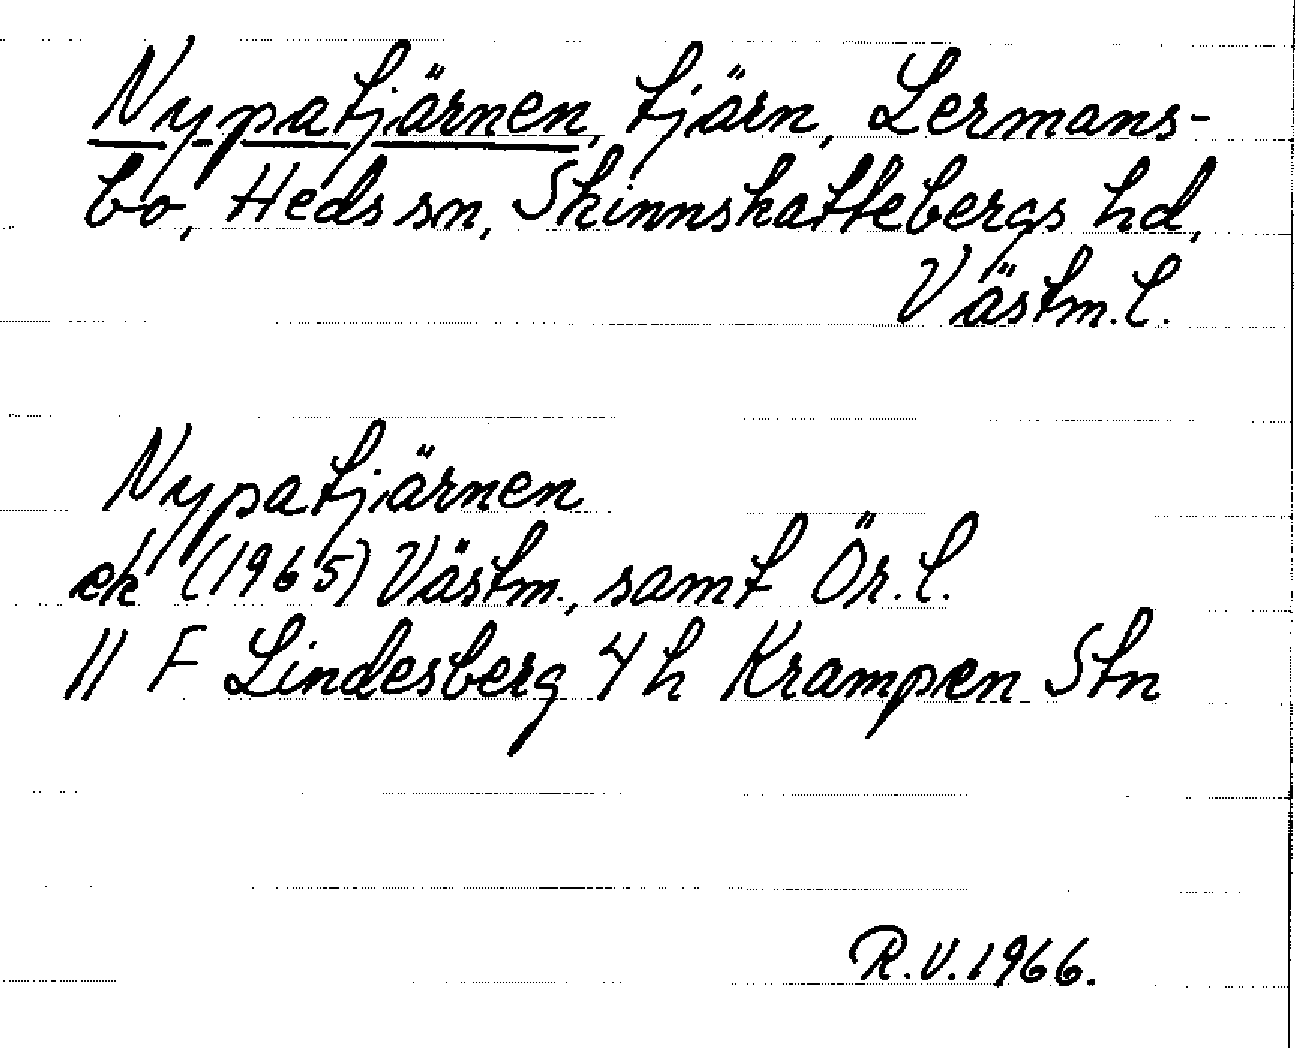 Nypatjärnen, tjärn, Lermans-
bo, Heds sn, Skinnskattebergs hd,
Västm. l.
Nypatjärnen
ek (1965) Västm., samt Ör. l.
11 F Lindesberg 4 h Krampen Stn
R.V. 1966.